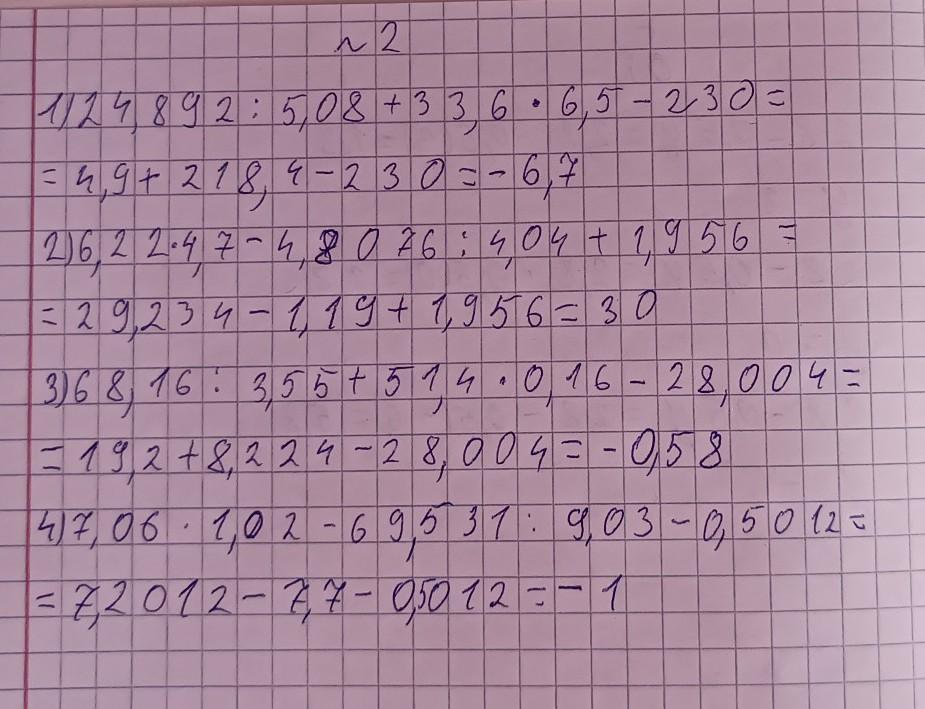 n2
1)24,892:5,08+33,6·6,5-230=
=4,9+218,4-230=-6,7
2)6,22·4,7-4,8076:4,04+1,956=
=29,234-1,19+1,956=30
3)68,16:3,55+51,4·0,16-28,004=
=19,2+8,224-28,004=-0,58
4)7,06·1,02-69,531:9,03-0,5012=
=7,2012-7,7-0,5012=-1